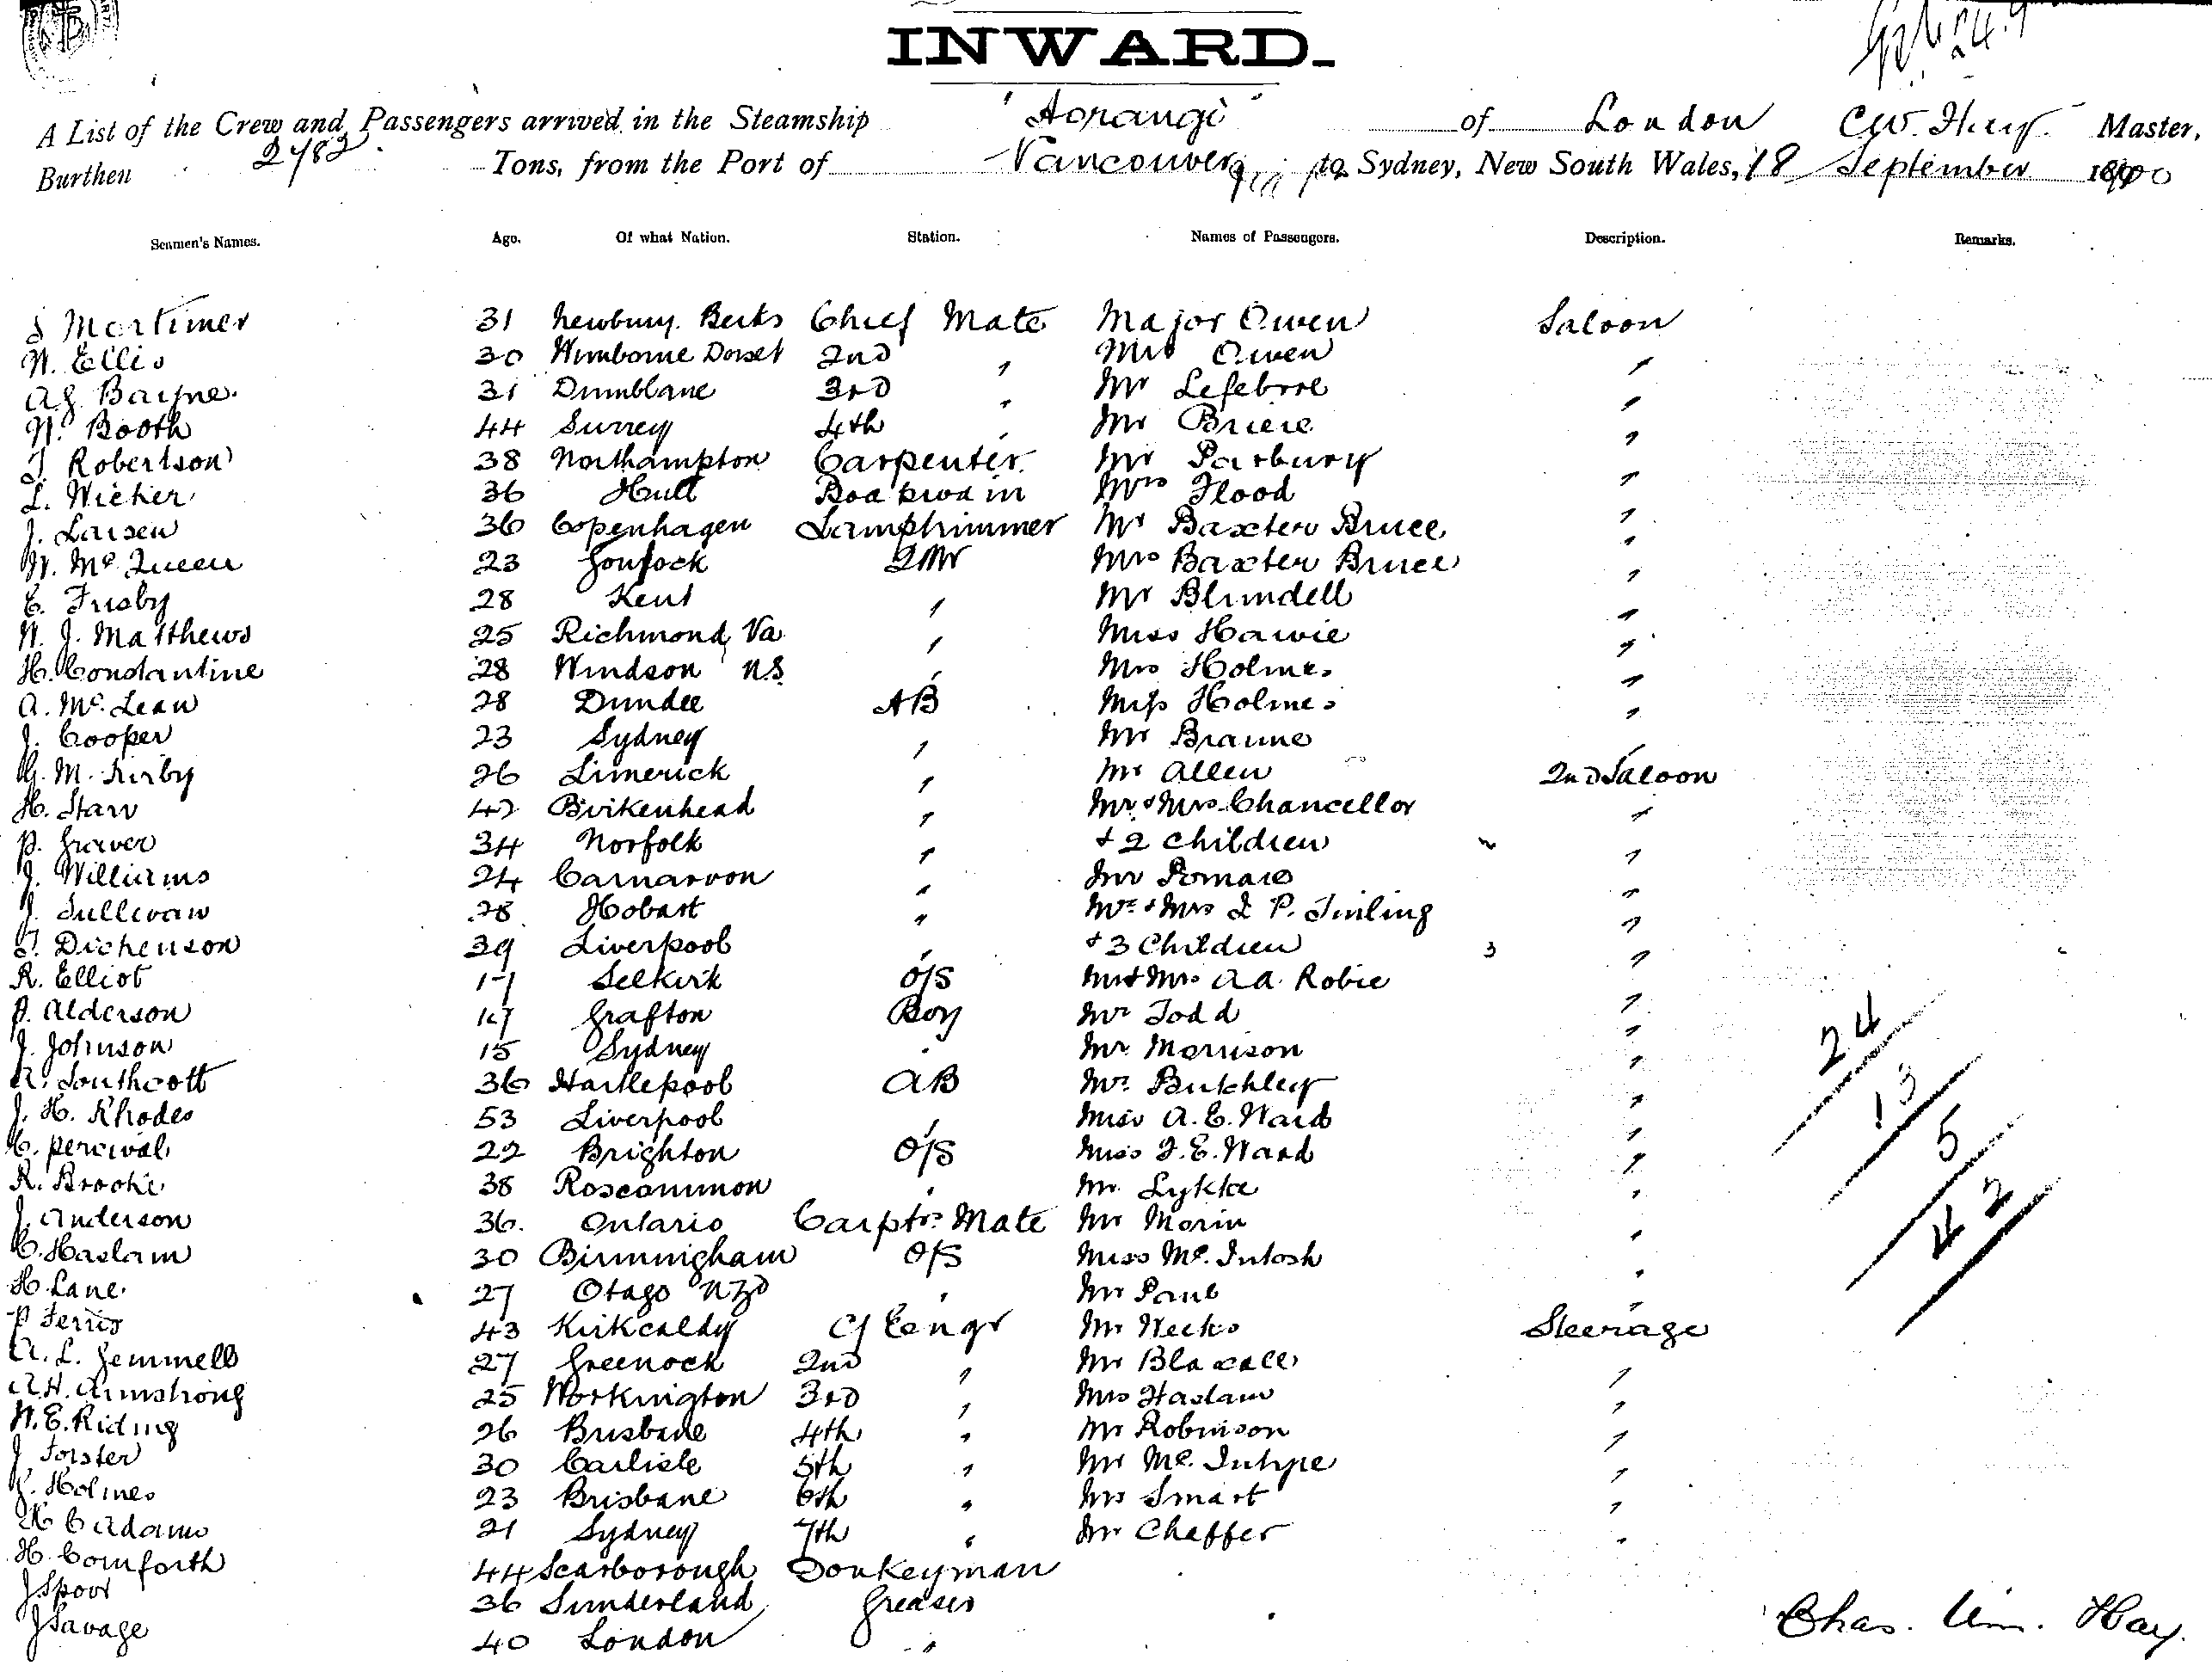 INWARD.
A List of the Crew and Passengers arrived in the Steamship "Aorangi" of London C.W. Hay. Master,
Burthen 2782. Tons, from the Port of Vancouver to Sydney, New South Wales, 18 September 1900
Seamen's Names. Age. Of what Nation. Station. Names of Passengers. Description. Remarks.
S Mortimer 31 Newbury. Berks Chief Mate Major Owen Saloon
W. Ellis 30 Wimborne Dorset 2nd " Mrs Owen "
A.G. Bayne. 31 Dumblane 3rd " Mr Lefebvre "
W. Booth 44 Surrey 4th " Mr Briere "
J Robertson 38 Northampton Carpenter. Mr Parbury "
L. Wicher 36 Hull Boatswain Mrs Flood "
J. Larsen 36 Copenhagen Lamptrimmer Mr Baxter Bruce "
W. McQueen 23 Gourock QMr Mrs Baxter Bruce "
E. Frisby 28 Kent " Mr Blundell "
W. J. Matthews 25 Richmond, Va " Miss Hawie "
H. Constantine 28 Windsor NS " Mrs Holmes "
A. McLean 28 Dundee AB Miss Holmes "
J. Cooper 23 Sydney " Mr Braune "
G. M. Kirby 26 Limerick " Mr Allen 2nd Saloon
H. Starr 42 Birkenhead " Mr & Mrs Chancellor "
P. Graver 34 Norfolk " + 2 children "
J. Williams 24 Carnarvon " Mr Pomare "
J. Sullivan 28 Hobart " Mr & Mrs I P. Tinling "
T. Dickenson 39 Liverpool " + 3 Children 3 "
R. Elliot 17 Selkirk O/S Mr & Mrs A A. Robie "
P. Alderson 17 Grafton Boy Mr Todd "
J. Johnson 15 Sydney " Mr Morrison "
A. Southcott 36 Hartlepool AB Mr "
J. H. Rhodes 53 Liverpool " Miss A. E. Ward "
C. Percival 22 Brighton O/S Miss J. E. Ward "
R. Brooke 38 Roscommon " Mr Lykke "
J. Anderson 36. Ontario Carptrs Mate Mr Morin "
C. Haslam 30 Birmingham O/S Miss McIntosh "
H. Lane 27 Otago NZd " Mr Paul "
P Ferris 43 Kirkcaldy Cf Engr Mr Weeks Steerage
A. L. Gemmell 27 Greenock 2nd " Mr Blaxall "
A. H. Armstrong 25 Workington 3rd " Mrs Haslam "
W. E. Riding 26 Brisbane 4th " Mr Robinson "
J Forster 30 Carlisle 5th " Mr McIntyre "
J. Holmes 23 Brisbane 6th " Mrs Smart "
H C Adams 21 Sydney 7th " Mr Cheffer "
H. Cornforth 44 Scarborough Donkeyman
J. Spoor 36 Sunderland Greaser
J Savage 40 London "
24
13
5
42
Chas. Wm. Hay.